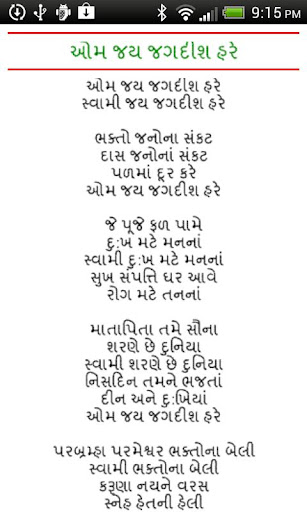 9:15 PM
ઓમ જય જગદીશ હરે
ઓમ જય જગદીશ હરે
સ્વામી જય જગદીશ હરે
ભક્તો જનોના સંકટ
દાસ જનોનાં સંકટ
પળમાં દૂર કરે
ઓમ જય જગદીશ હરે
જે પૂજે ફળ પામે
દુ:ખ મટે મનનાં
સ્વામી દુ:ખ મટે મનનાં
સુખ સંપત્તિ ઘર આવે
રોગ મટે તનનાં
માતાપિતા તમે સૌના
શરણે છે દુનિયા
સ્વામી શરણે છે દુનિયા
નિસદિન તમને ભજતાં
દીન અને દુ:ખિયાં
ઓમ જય જગદીશ હરે
પરબ્રમ્હા પરમેશ્વર ભક્તોના બેલી
સ્વામી ભક્તોના બેલી
કરૂણા નયને વરસ
સ્નેહ હેતની હેલી